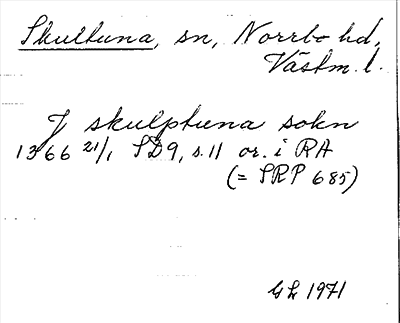 Skultuna, sn, Norrbo hd,
Västm. l.
J skulptuna sokn
1366 21/1 SD9, s. 11 or. i RA
(= SRP 685)
GL 1971